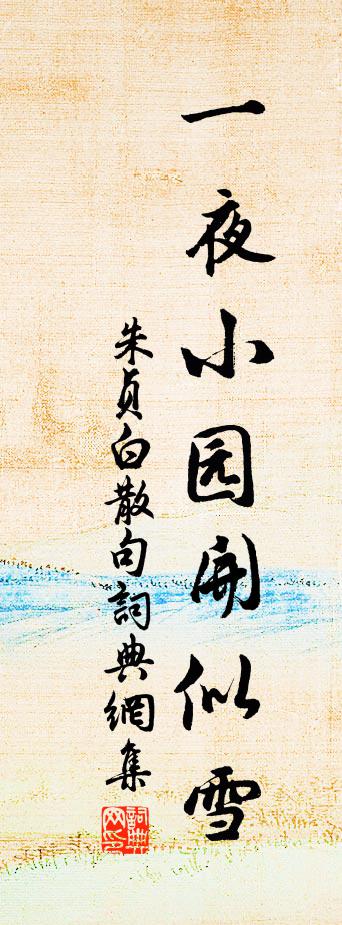 一夜小园開似雪
朱貞白散句詞典網集
詞典
网印